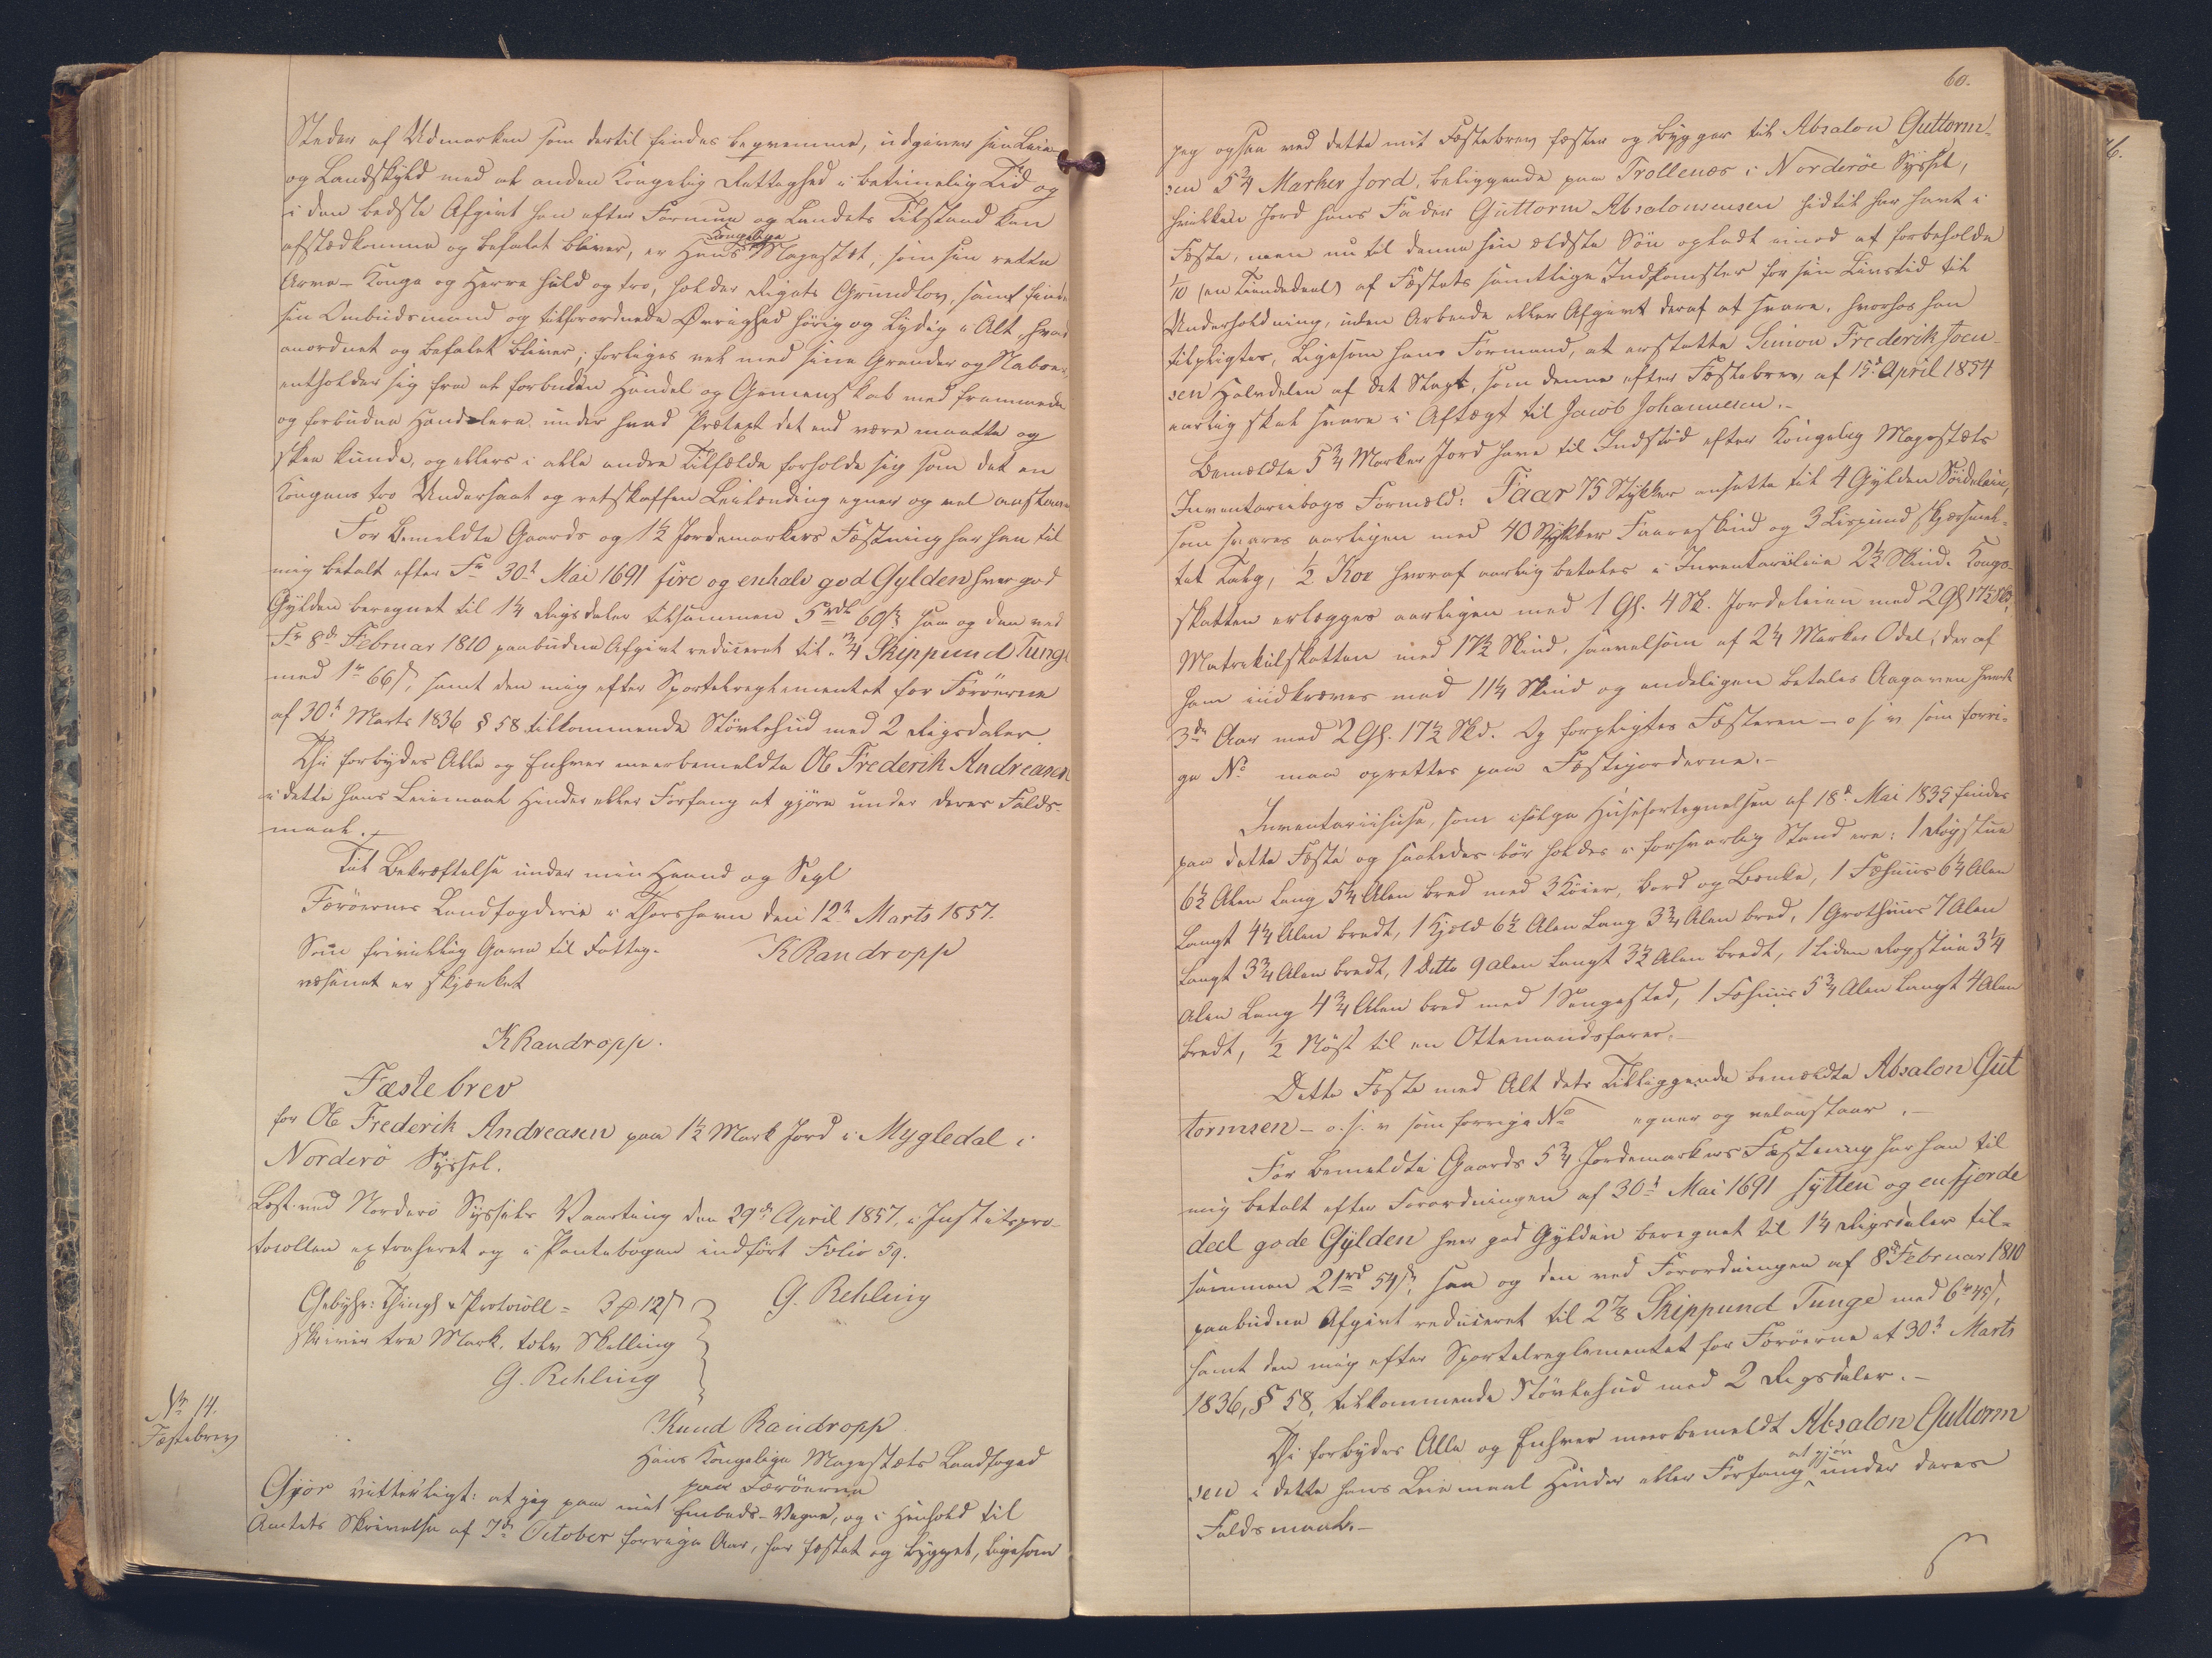 Steder af Udmarken som dertil findes beqvemme, udgiver sin Leie
og Landskyld med al anden Kongelig Rettighed i betimelig Tid og
i den bedste Afgivt han efter Formue og Landets Tilstand kan
afstedkomme og befalet bliver, er Hans Kongelige Majestæt, som sin rette
Arve-Konge og Herre huld og tro, holder Rigets Grundlov, samt
sin Ombudsmand og tilforordnede Øvrighed hørig og lydig i Alt, hvad
anordnet og befalet bliver; forliges vel med sine Grander og Naboer,
entholder sig fra al forbuden Handel og Gemenskab med fremmede
og forbudne Handlere under hvad Prætext det end være maatte og
skee kunde, og ellers i alle andre Tilfælde forholde sig som det en
Kongens tro Undersaat og retskaffen Leilænding egner og vel anstaaer
For bemeldte Gaards og 1½ Jordemarkers Fæstning har han til
mig betalt efter Fr 30t Mai 1691 fire og enhalv god Gylden hver god
Gylden beregnet til 1¼ Rigsdaler tilsammen 5 rdl 60 s saa og den ved
Fr 8de Februar 1810 paabudne Afgivt reduceret til ¾ Skippund Tunge
med 1 rd 66 s, samt den mig efter Sportelreglementet for Færöerne
af 30t Marts 1836 § 58 tilkommende Stövlehud med 2 Rigsdaler.
Thi forbydes Alle og Enhver meerbemeldte Ole Frederik Andreasen
i dette hans Leiemaal Hinder eller Forfang at gjöre under deres Falds-
maal.
Til Bekræftelse under min Haand og Segl
Færöernes Landfogderie i Thorshavn den 12t Marts 1857.
Som frivillig Gave til Fattig- KRandropp
væsenet er skjænket
KRandropp.
Fæstebrev
for Ole Frederik Andreasen paa 1½ Mark Jord i Mygledal i
Norderö Syssel.
Læst ved Norderö Syssels Vaarting den 29de April 1857, i Justitspro-
tocollen extraheret og i Pantebogen indfört Folio 59.
Gebyhr: Thingl & Protocoll = 3 12 s G. Rehling
skriver tre Mark, tolv Skilling
G. Rehling
Nr 14. Knud Randropp
Fæstebrev Hans Kongelige Majestæts Landfoged
paa Færöerne
Gjör vitterligt: at jeg paa mit Embeds-Vegne, og i Henhold til
Amtets Skrivelse af 7de October forrige Aar, har fæstet og bygget, ligesom
60.
jeg ogsaa ved dette mit Fæstebrev fæster og bygger til Absalon Guttorm-
sen 5¾ Marker Jord, beliggende paa Trollenæs i Norderöe Syssel,
hvilken Jord hans Fader Guttorm Absalonsensen hidtil har havt i
Fæste, men nu til denne sin ældste Sön opladt imod at forbeholde
1/10 (en Tiendedeel) af Fæstets samtlige Indkomster for sin Livstid til
Underholdning, uden Arbeide eller Afgivt deraf at svare, hvorhos han
tilpligtes, ligesom hans Formand, at erstatte Simon Frederik Joen-
sen Halvdelen af det Slagt, som denne efter Fæstebrev af 15d April 1854
aarlig skal svare i Aftægt til Jacob Johannesen.-
Bemeldte 5¾ Marker Jord have til Indstöd efter Kongelig Majestæts
Inventariebogs Formæld: Faar 75 Stykker ansatte til 4 Gylden Söideleie,
som svares aarligen med 40 Stykker Faareskind og 3 Lispund skjærsmel-
tet Talg, ½ Koe hvoraf aarlig betales i Inventarieleie 2½ Skind. Konge-
skatten erlægges aarligen med 1 Gl. 4 Sk. Jordeleien med 2 Gl 17½ Sk,
Matrikulskatten med 17½ Skind, saavelsom af 2¼ Marker Odel, der af
ham indkræves med 11¼ Skind og endeligen betales Aagaven hvert
3de Aar med 2 Gl. 17½ Skd. Og forpligtes Fæsteren - o.s.v. som forri-
ge No maa oprettes paa Fæstejorderne.-
Inventariihuse, som ifölge Huusefortegnelsen af 18d Mai 1835 findes
paa dette Fæste og saaledes bör holdes i forsvarlig Stand ere: 1 Rögstue
6½ Alen lang 5¼ Alen bred med 3 Köier, Bord og Bænke, 1 Fæhuus 6¼ Alen
langt 4¼ Alen bredt, 1 Hjeld 6½ Alen lang 3¾ Alen bred, 1 Grothuus 7 Alen
langt 3¾ Alen bredt, 1 Ditto 9 alen langt 3½ Alen bredt, 1 liden Rögstue 3¼
Alen lang 4¾ Alen bred med 1 Sengested, 1 Fæhuus 5¾ Alen langt 4 Alen
bredt, ½ Nöst til en Ottemandsfarer.-
Dette Fæste med Alt dets Tilliggende bemeldte Absalon Gut
tormsen - o.s.v som forrige No egner og velanstaaer.-
For bemeldte Gaards 5¾ Jordemarkers Fæstning har han til
mig betalt efter Forordningen af 30t Mai 1691 sytten og en fjerde
deel gode Gylden hver god Gylden beregnet til 1¼ Rigsdaler til-
sammen 21 rd 54 s, saa og den ved Forordningen af 8d Februar 1810
paabudne Afgivt reduceret til 2⅞ Skippund Tunge med 6 rd 45 s,
samt den mig efter Sportelreglementet for Færöerne af 30t Marts
1836, § 58, tilkommende Stövlehud med 2 Rigsdaler.-
Thi forbydes Alle og Enhver meerbemeldt Absalon Guttorm
sen i dette hans Leiemaal Hinder eller Forfang at gjöre under deres
Faldsmaal.-